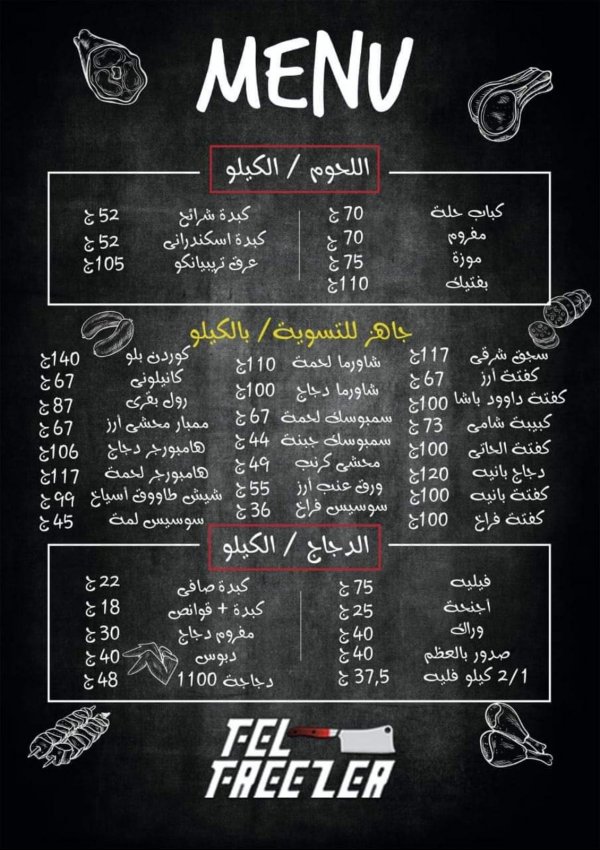 MENU
اللحوم / الكيلو
كباب حلة 70 ج
مفروم 70 ج
موزة 75 ج
بفتيك 110ج
كبدة شرائح 52 ج
كبدة اسكندرانى 52 ج
عرق تريبيانكو 105ج
جاهز للتسوية/ بالكيلو
سجق شرقى 117ج
كفتة أرز 67 ج
كفتة داوود باشا 100ج
كبيبة شامى 73 ج
كفتة الحاتى 100ج
دجاج بانيه 120ج
كفتة بانيه 100ج
كفتة فراخ 100ج
شاورما لحمة 110ج
شاورما دجاج 100ج
سمبوسك لحمة 67 ج
سمبوسك جبنة 44 ج
محشى كرنب 49 ج
ورق عنب أرز 55 ج
سوسيس فراخ 36 ج
كوردن بلو 140ج
كانيلونى 67 ج
رول بقرى 87 ج
ممبار محشى أرز 67 ج
هامبورجر دجاج 106ج
هامبورجر لحمة 117ج
شيش طاووق أسياخ 99 ج
سوسيس لمة 45 ج
الدجاج / الكيلو
فيليه 75 ج
اجنحة 25 ج
وراك 40 ج
صدور بالعظم 40 ج
2/1 كيلو فليه 37,5 ج
كبدة صافى 22 ج
كبدة + قوانص 18 ج
مفروم دجاج 30 ج
دبوس 40 ج
دجاجة 1100 48 ج
FEL
FREEZER